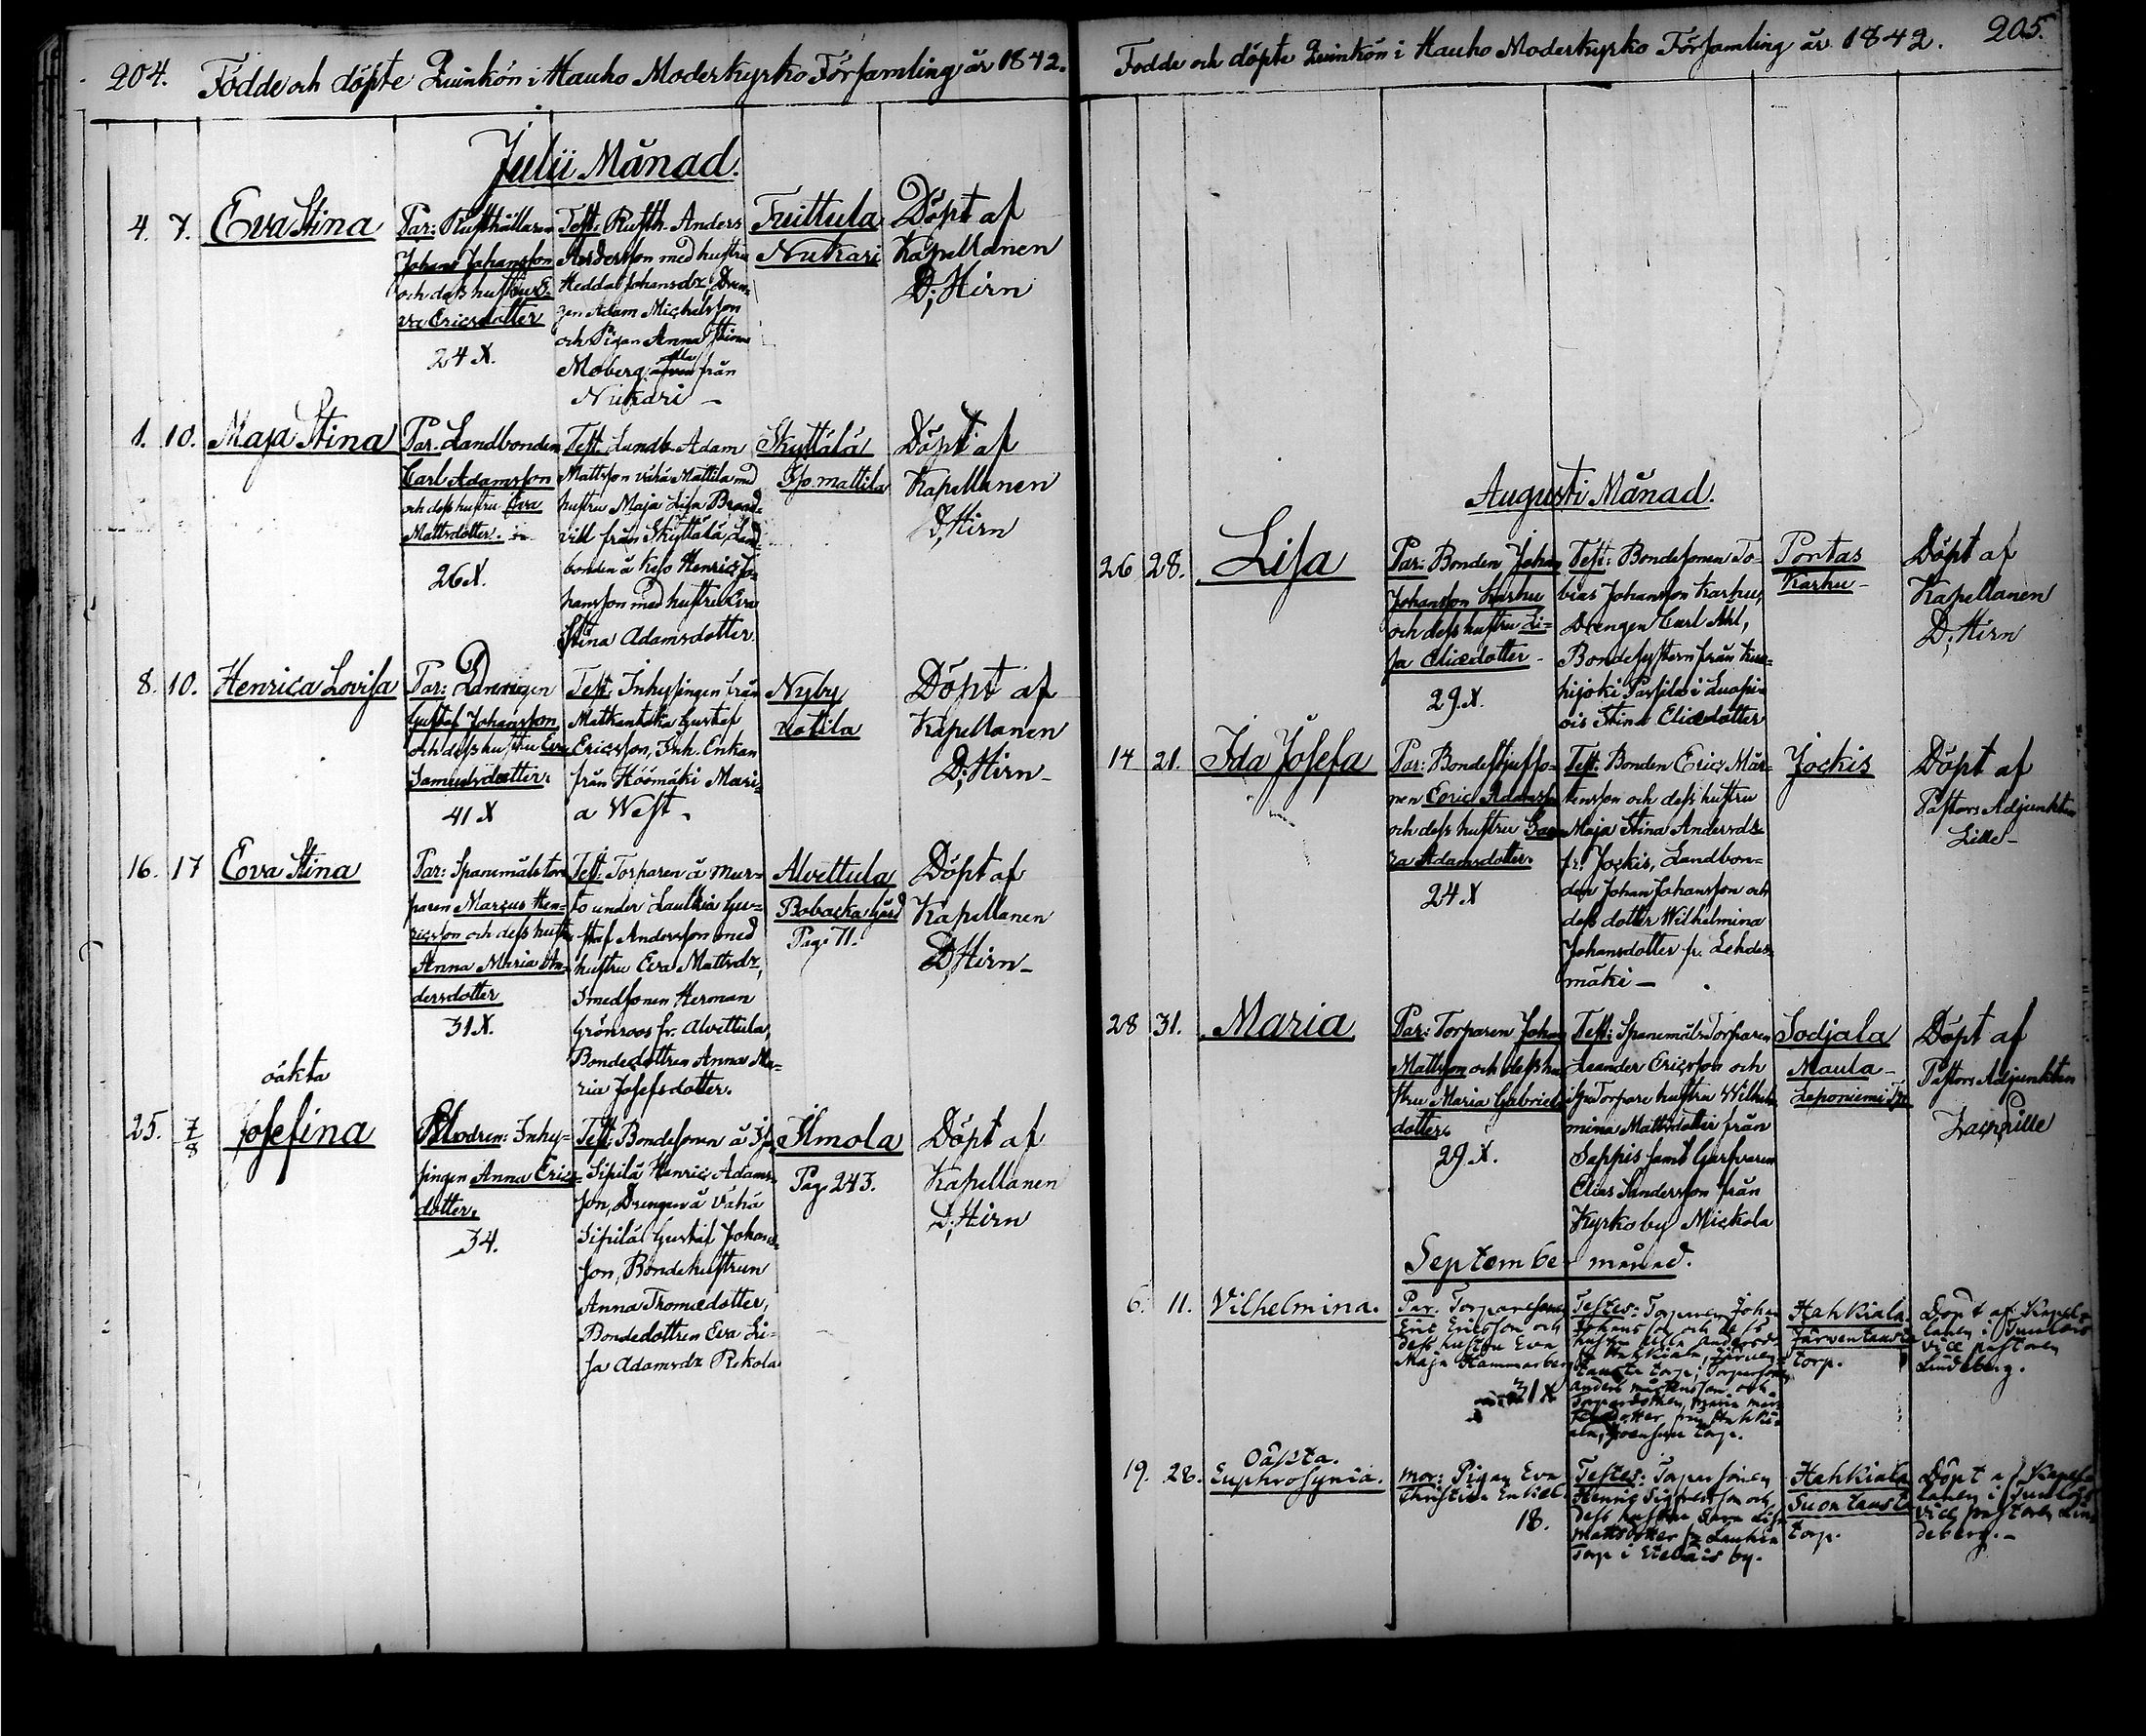 204. Födde och döpte Quinkön i Hauho Moderkyrko Församling år 1842.
Julii Månad.
4. 7. Eva Stina
Par: Rusthållaren
Johan Johansson
och dess hustru E-
va Ericsdotter
24 X.
Test: Rusth. Anders
Andersson med hustru
Hedda Johansdr, Dren-
gen Adam Michelsson
och Pigan Anna Stina
Moberg alla från
Nukari –
Tuittula
Nukari
Döpt af
Kapellanen
D; Hirn
1. 10. Maja Stina
Par. Landbonden
Carl Adamsson
och dess hustru Eva
Mattsdotter.
26 X.
Test. Landb. Adam
Mattsson vähä Mattila med
hustru Maja Lisa Brand-
vill från Skyttälä, Land-
bonden å Henric Jo-
hansson med hustru Eva
Stina Adamsdotter.
Skyttälä
Iso mattila
Döpt af
Kapellanen
D; Hirn
8. 10. Henrica Lovisa
Par: Drengen
Gustaf Johansson
och dess hustru Eva
Samuelsdotter.
41 X
Test: Inhysingen från
Matkantaka Gustaf
Ericsson, Inh. Enkan
från Höömäki Mari-
a West.
Nyby
Uotila
Döpt af
Kapellanen
D; Hirn –
16. 17 Eva Stina
Par: Spanemålstor-
paren Marcus Hen-
ricsson och dess hustru
Anna Maria An-
dersdotter
31 X.
Test: Torparen å Mur-
to under Laukia Gus-
taf Andersson med
hustru Eva Mattsdr,
Smedsonen Herman
Grönroos fr. Alvettula,
Bondedottren Anna Ma-
ria Josefsdotter.
Alvettula
Bobacka Gård
Pag. 71.
Döpt af
Kapellanen
D; Hirn –
oäkta
25. 7/8 Josefina
Modren: Inhy-
singen Anna Erics-
dotter.
34.
Test: Bondesonen å Iso
Sipilä Henric Adams-
son, Drengen å Vähä
Sipilä Gustaf Johans-
son, Bondehustrun
Anna Thomædotter,
Bondedottren Eva Li-
sa Adamsdr Rekola
Ilmola
Pag. 243.
Döpt af
Kapellanen
D; Hirn
Födde och döpte Quinkön i Hauho Moderkyrko Församling år 1842. 205.
Augusti Månad.
26 28. Lisa
Par: Bonden Johan
Johansson Karhu
och dess hustru Li-
sa Eliædotter –
29. X.
Test: Bondesonen To-
bias Johansson Karhu,
Drengen Carl Ahl,
Bondesystern från Kuo-
hijoki Passila i Luopi-
ois Stina Eliædotter
Portas
Karhu –
Döpt af
Kapellanen
D; Hirn
14 21. Ida Josefa
Par: Bondestjufso-
nen Eric Adamsson
och dess hustru Sa-
ra Adamsdotter.
24 X
Test: Bonden Eric Mår-
tensson och dess hustru
Maja Stina Andersdr
fr. Jockis, Landbon-
den Johan Johansson och
dess dotter Wilhelmina
Johansdotter fr. Lehdes-
mäki –
Jockis
Döpt af
Pastors Adjunkten
Lille –
28 31. Maria
Par: Torparen Johan
Mattsson och dess hu-
stru Maria Gabriels-
dotter.
29 X.
Test: Spanemåls Torparen
Leander Ericsson och
Torpare hustru Wilhel-
mina Mattsdotter från
Sappis samt Garfvaren
Elias Sandersson från
Kyrkoby Mickola
Sodjala
Maula –
Laponiemi
Döpt af
Pastors Adjunkten
Zach; Lille
September månad.
6. 11. Vilhelmina.
Par. Torparesonen
Eric Ericsson och
dess hustru Eva
Maja Hammarberg
31 X
Testes: Torparen Johan
Johansson och dess
hustru Ulla Andersdr
fr Hahkiala, Järven-
tausta torp; Torparsonen
Anders Mårtensson och
Torpardottren Maria Mår-
tensdotter från Hahki-
ala, torp.
Hahkiala
Järventausta
torp.
Döpt af Kapel-
lanen i Tuulois
vice pastoren
Lindeberg.
Oäpta.
19. 28. Euphrosynia.
Mor: Pigan Eva
Christina Enkvel
18.
Testes: Torparsonen
Henric Sigfredsson och
dess hustru Sara Lisa
Mattsdotter fr Laukia
Torp i Eteläis by.
Hahkiala
Suontausta
torp.
Döpt af Kapel-
lanen i Tuulois
vice pastoren Lin-
deberg. –